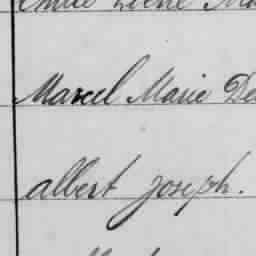 Marcel Marie De
albert joseph.